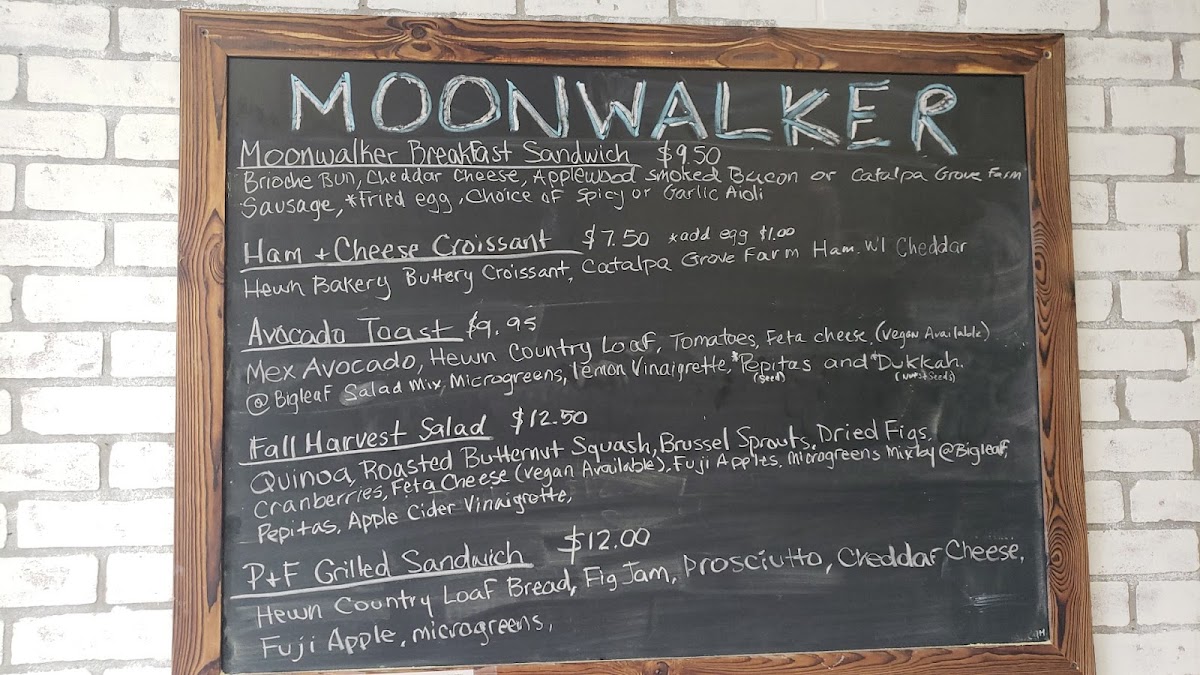 MOONWALKER
Moonwalker Breakfast Sandwich $9.50
Brioche Bun, Cheddar Cheese, Applewood smoked Bacon or Catalpa Grove Farm
Sausage, *fried egg, Choice of Spicy or Garlic Aioli
Ham + Cheese Croissant $7.50 *add egg $1.00
Hewn Bakery Buttery Croissant, Catalpa Grove Farm Ham, WI Cheddar
Avocado Toast $9.95
Mex Avocado, Hewn Country Loaf, Tomatoes, Feta cheese (vegan Available)
@Bigleaf Salad Mix, Microgreens, lemon Vinaigrette, *Pepitas and *Dukkah.
(seed) (nuts+seeds)
Fall Harvest Salad $12.50
Quinoa, Roasted Butternut Squash, Brussel Sprouts, Dried Figs,
Cranberries, Feta Cheese (vegan Available), Fuji Apples, microgreens Mix by @Bigleaf,
Pepitas, Apple Cider Vinaigrotte,
P+F Grilled Sandwich $12.00
Hewn Country Loaf Bread, Fig Jam, Prosciutto, Cheddar Cheese,
Fuji Apple, microgreens,